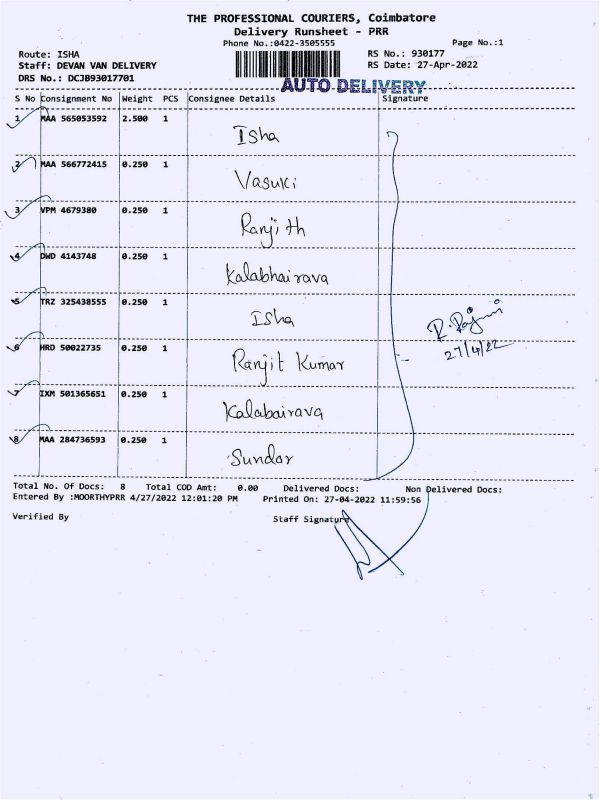 THE PROFESSIONAL COURIERS, Coimbatore
Delivery Runsheet - PRR
Phone No.:0422-3505555 Page No.:1
Route: ISHA RS No.: 930177
Staff: DEVAN VAN DELIVERY RS Date: 27-Apr-2022
DRS No.: DCJB93017701
AUTO DELIVERY
S No Consignment No Weight PCS Consignee Details Signature
1 MAA 565053592 2.500 1
Isha
2 MAA 566772415 0.250 1
Vasuki
3 VPM 4679380 0.250 1
Ranjith
4 DWD 4143748 0.250 1
Kalabhairava
5 TRZ 325438555 0.250 1
Isha
R. Rajini
27/4/22
6 HRD 50022735 0.250 1
Ranjit Kumar
7 IXM 501365651 0.250 1
Kalabairava
8 MAA 284736593 0.250 1
Sundar
Total No. Of Docs: 8 Total COD Amt: 0.00 Delivered Docs: Non Delivered Docs:
Entered By :MOORTHYPRR 4/27/2022 12:01:20 PM Printed On: 27-04-2022 11:59:56
Verified By Staff Signature